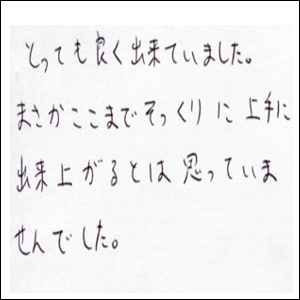 とっても良く出来ていました。
まさかここまでそっくりに上手に
出来上がるとは思っていま
せんでした。